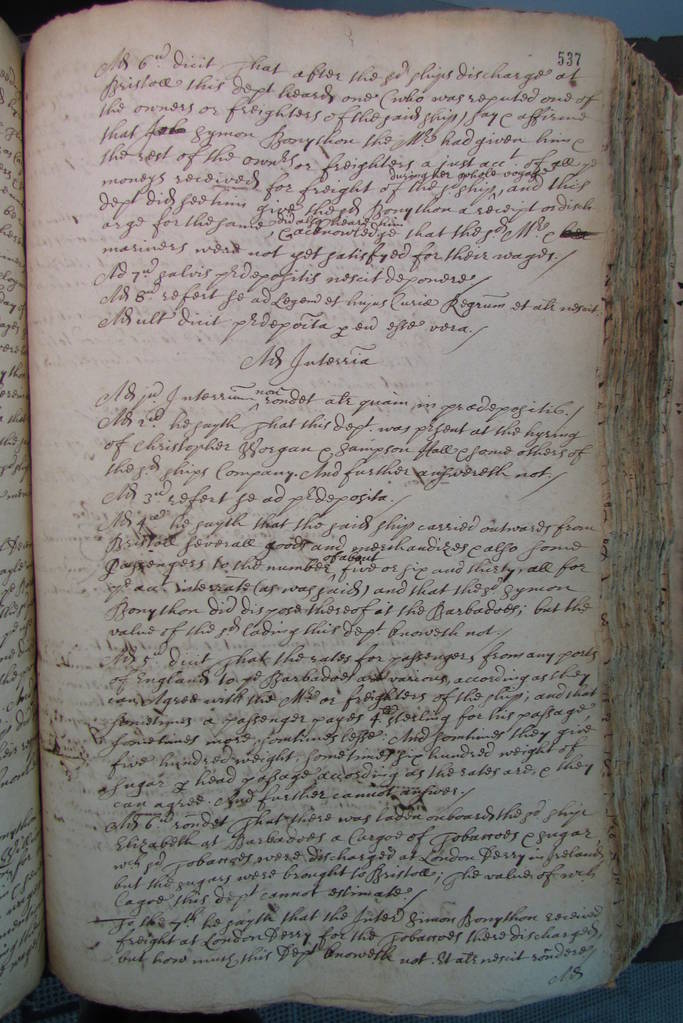 537
Ad 6um dicit That after the sd ships discharge at
Bristoll this dept heard one (who was reputed one of
the owners or freighters of the said ship) say & affirme
that Symon Bonython the Mr had given him &
the rest of the owners or freighters a just acct of all ye
moneys received for freight of the sd ship during her whole voyage, and this
dept did see him give the sd Bonython a receipt or disch
arge for the same and also heard him
& acknowledge that the sd Mr &
mariners were not yet satisfyed for their wages./
Ad 7um salvis prdepositis nescit deponere/
Ad 8um refert se ad Legem et hujus Curie Regrum et alr nescit.
Ad ult dicit prdeposita p eum esse vera./
Ad Interria
Ad jum Interrium non rondet alr quam in praedepositis./
Ad 2um he sayth That this dept. was present at the hyring
of Christopher Morgan & Sampson Hall & some others of
the sd ships Company. And further answereth not./
Ad 3um refert se ad prdeposita./
Ad 4um he sayth that the said ship carried outwards from
Bristoll severall goods and merchandizes & also some
Passengers to the number of about five or six and thirty, all for
ye acct interrate (as was said) and that the sd Symon
Bonython did dispose thereof at the Barbadoes; but the
value of the sd lading this dept knoweth not./
Ad 5um dicit That the rates for passengers from any ports
of England to ye Barbadoes are various, according as they
can Agree with the Mr or freighters of the ship; and that
sometimes a passenger payes sterling for his passage,
sometimes more, somtimes lesse: And somtimes they give
five hundred weight, sometimes six hundred weight of
sugar p head passage according as the rates are, & they
can agree. And further cannot answer./
Ad 6um rondet That there was laden onboard the sd ship
Elizabeth at Barbadoes a Cargoe of Tobaccoes & sugar
wch sd Tobaccoes were discharged at London Derry in Ireland,
but the sugars were brought to Bristoll; The value of wch
Cagoe this dept cannot estimate./
To the 7th he sayth that the Interd Simon Bonython received
freight at London Derry for the Tobaccoes there discharged,
but how much this Dept knoweth not. Et alr nescit rondere/
Ad